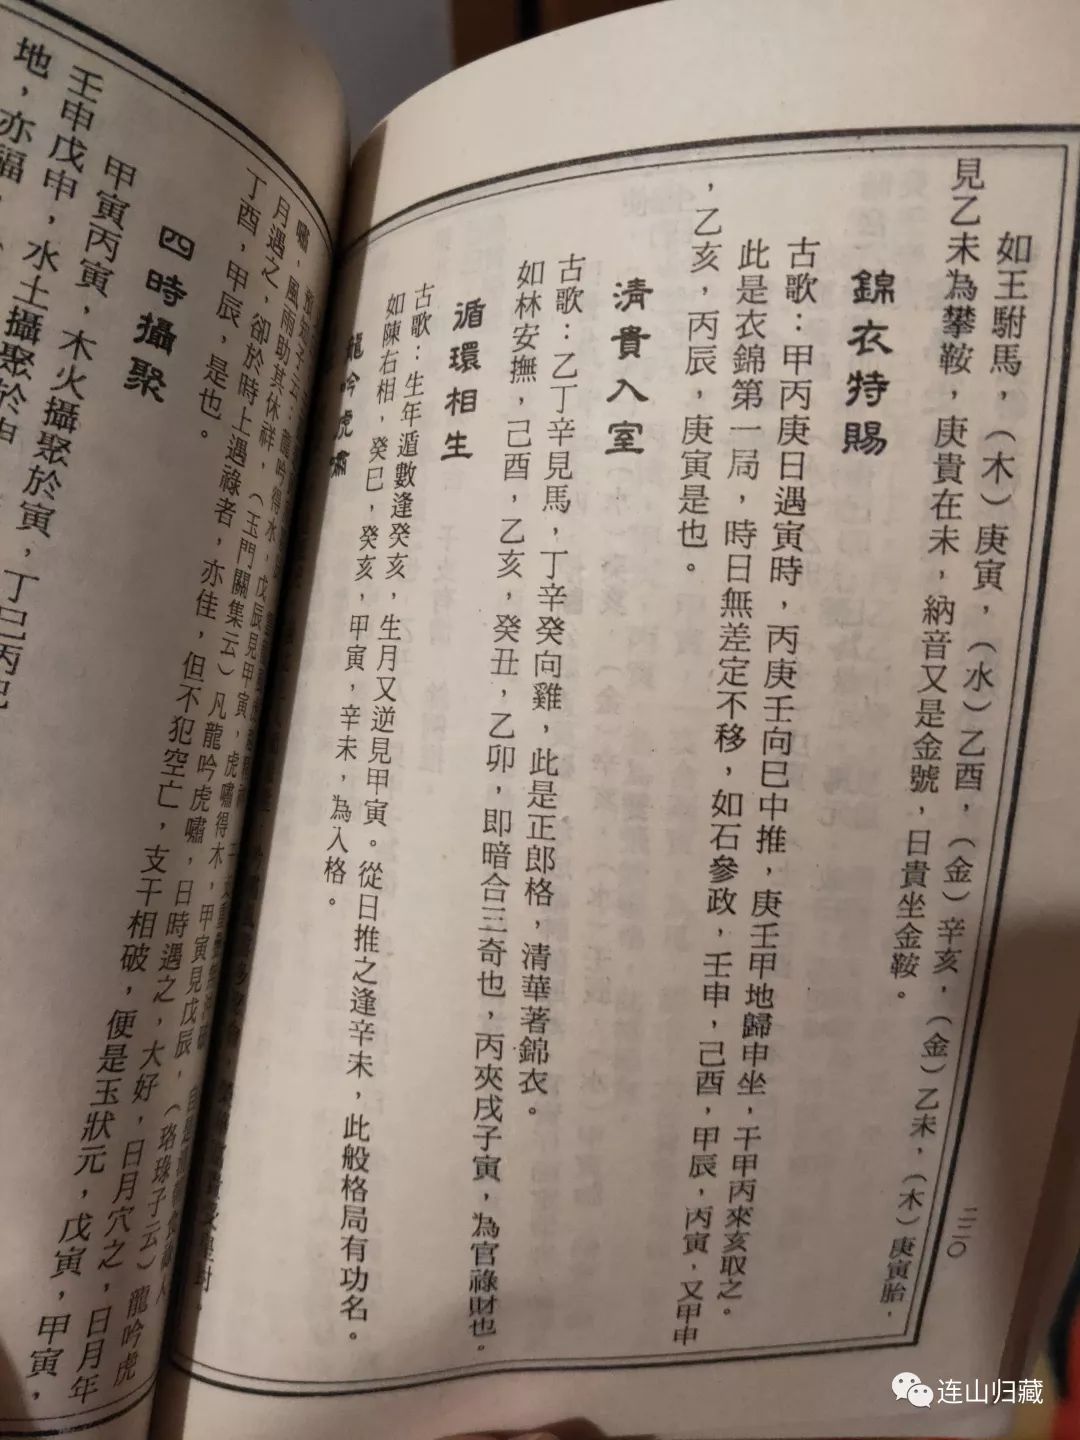 如王駙馬，（木）庚寅，（水）乙酉，（金）辛亥，（金）乙未，（木）庚寅胎，
見乙未為攀鞍，庚貴在未，納音又是金號，日貴坐金鞍。
錦衣特賜
古歌：甲丙庚日遇寅時，丙庚壬向巳中推，庚壬甲地歸申坐，干甲丙來亥取之。
此是衣錦第一局，時日無差定不移，如石參政，壬申，己酉，甲辰，丙寅，又甲申
，乙亥，丙辰，庚寅是也。
清貴入室
古歌：乙丁辛見馬，丁辛癸向雞，此是正郎格，清華著錦衣。
如林安撫，己酉，乙亥，癸丑，乙卯，即暗合三奇也，丙夾戌子寅，為官祿財也。
遁環相生
古歌：生年遁數逢癸亥，生月又逆見甲寅。從日推之逢辛未，此般格局有功名。
如陳右相，癸巳，癸亥，甲寅，辛未，為入格。
龍吟虎嘯
二二〇
龍吟得水，戊辰見甲寅，虎嘯得木，甲寅見戊辰，
（珞琭子云）龍吟虎
嘯，風雨助其休祥，（玉門關集云）凡龍吟虎嘯，日時遇之，大好，日月穴之，日月年
月遇之，卻於時上遇祿者，亦佳，但不犯空亡，支干相破，便是玉狀元，戊寅，甲寅，
丁酉，甲辰，是也。
四時攝聚
甲寅丙寅，木火攝聚於寅，丁巳丙
壬申戊申，水土攝聚於申
地，亦福，
连山归藏